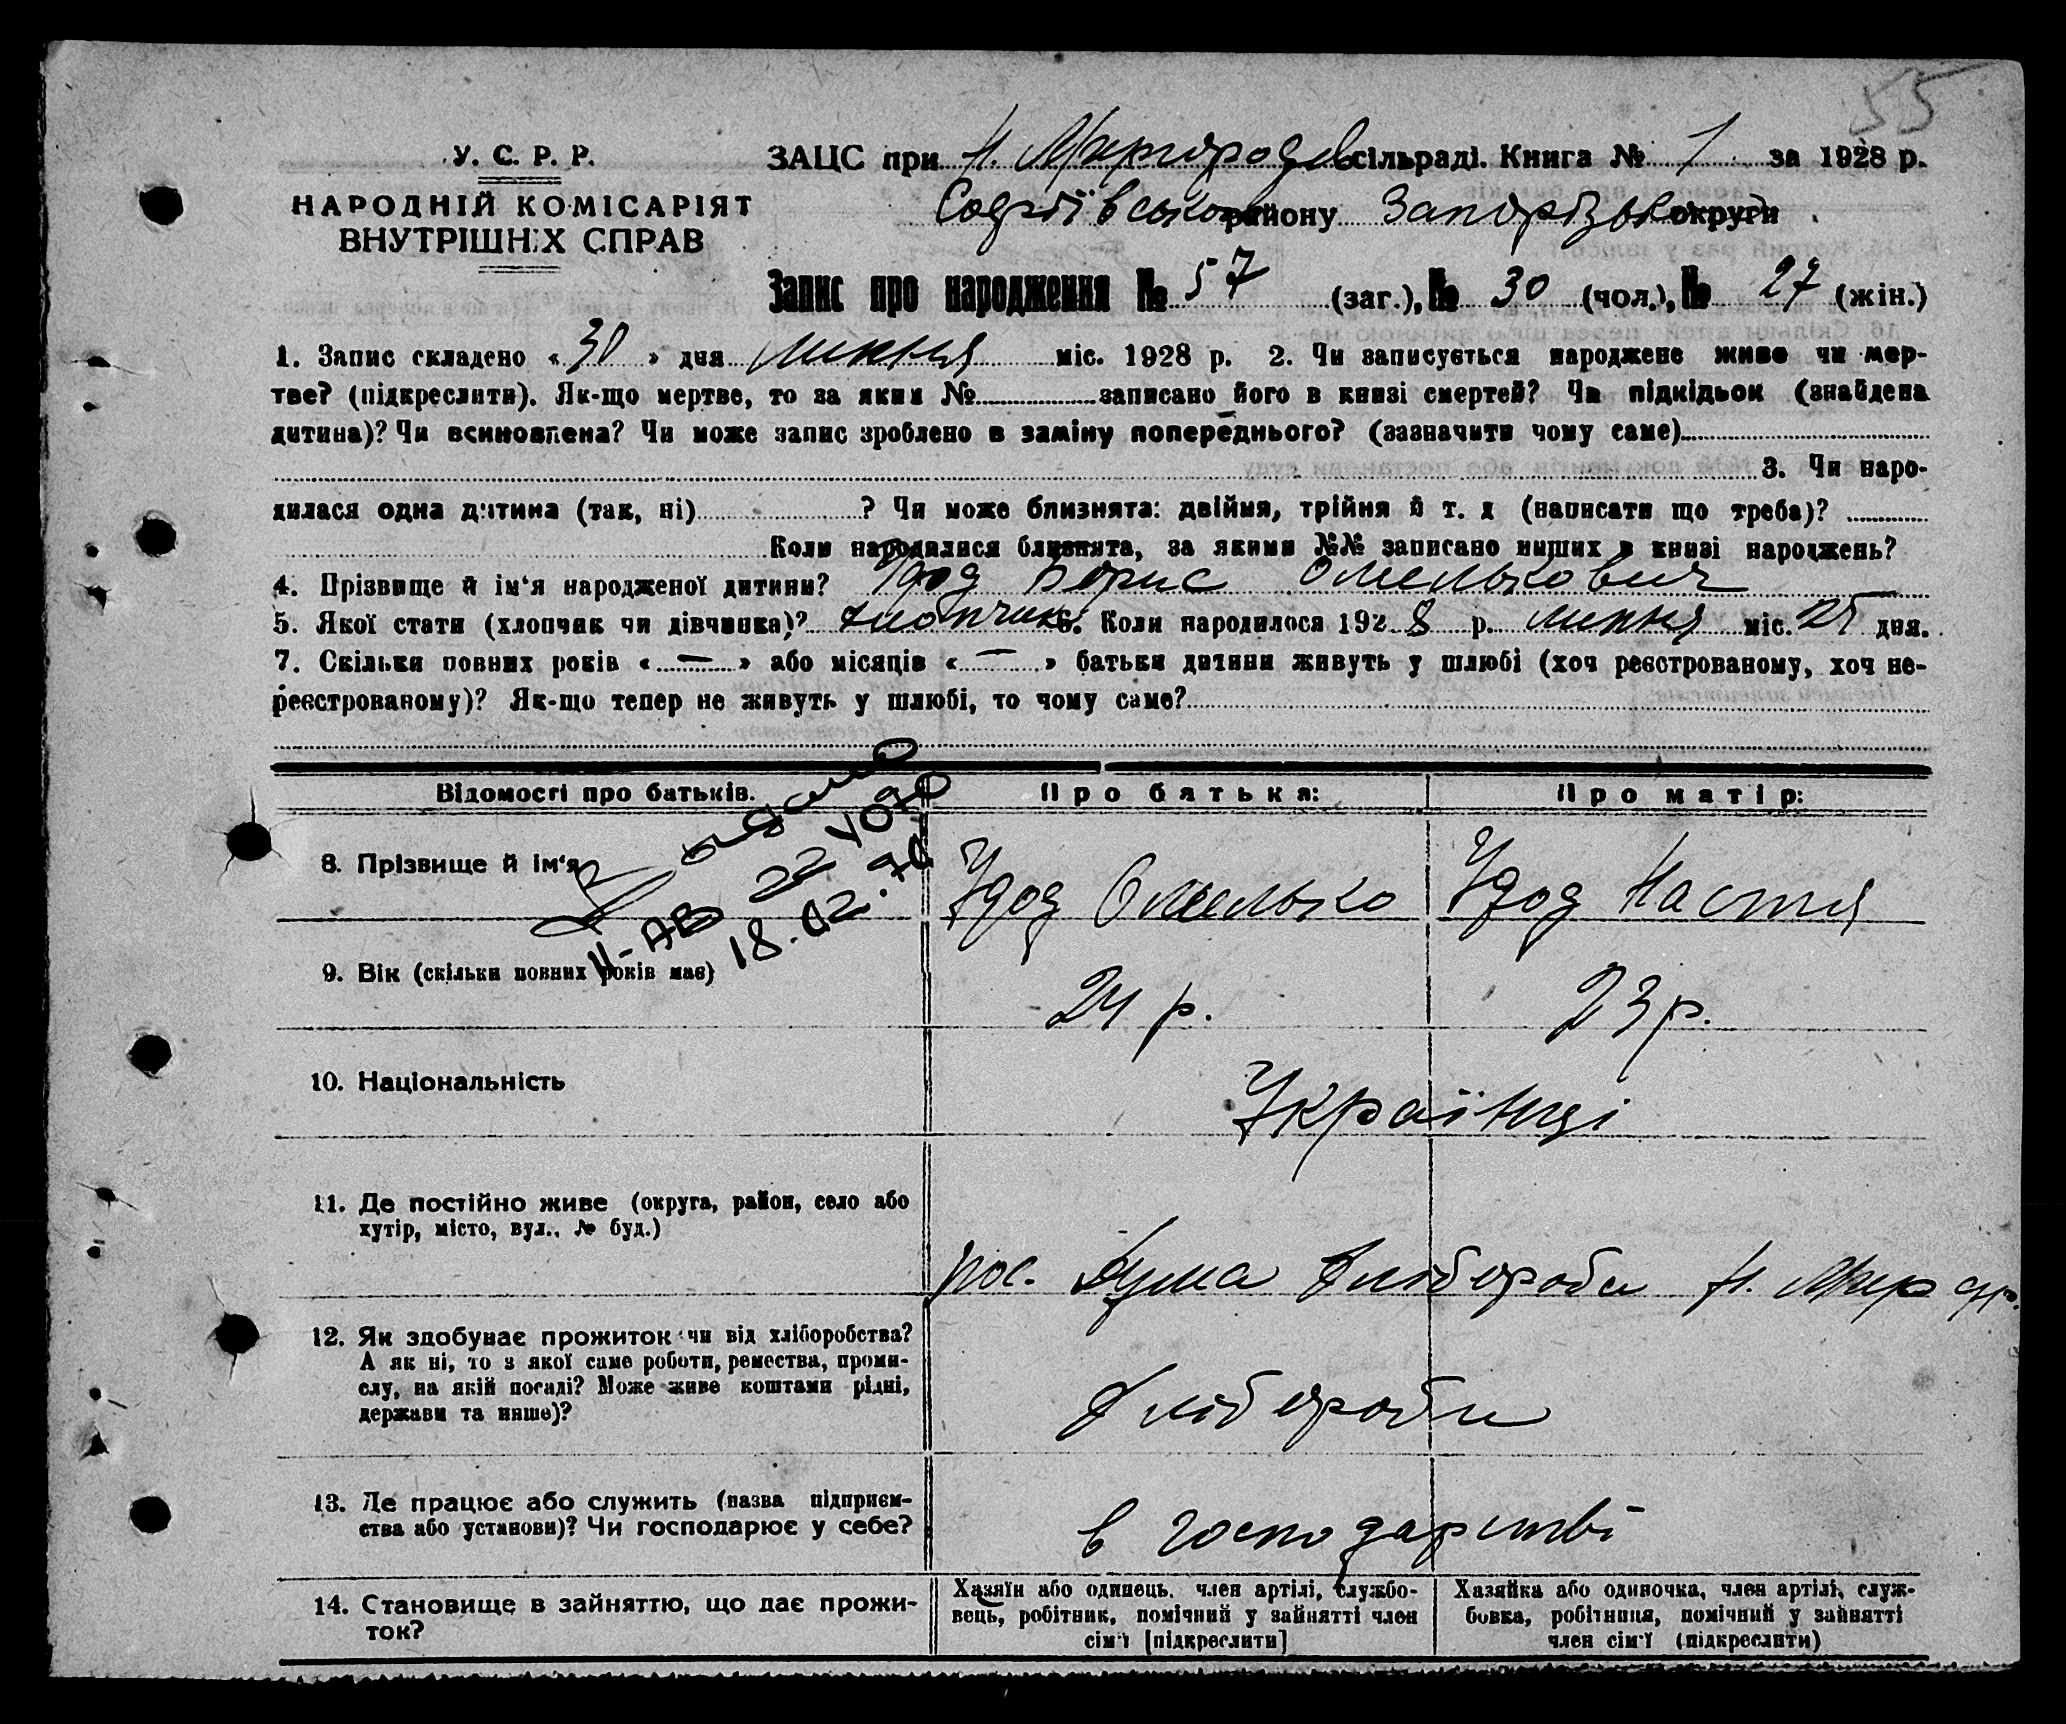 55
У. С. Р. Р.
НАРОДНІЙ КОМІСАРІЯТ
ВНУТРІШНІХ СПРАВ
ЗАЦС при Н. Миргородськ сільраді. Книга № 1 за 1928 р.
Софіївського району Запорізької округи
Запис про народження № 57 (заг.), № 30 (чол.), № 27 (жін.)
1. Запис складено « 30 » дня липня міс. 1928 р. 2. Чи записується народжене живе чи мер-
тве? (підкреслити). Як-що мертве, то за яким № записано його в книзі смертей? Чи підкідьок (знайдена
дитина)? Чи всиновлена? Чи може запис зроблено в заміну попереднього? (зазначити чому саме)
3. Чи наро-
дилася одна дитина (так, ні) ? Чи може близнята: двійня, трійня й т. д (написати що треба)?
Коли народилися близнята, за якими №№ записано инших в книзі народжень?
4. Прізвище й ім'я народженої дитини? Удод Борис Омелькович
5. Якої стати (хлопчик чи дівчинка)? хлопчик 6. Коли народилося 192 8 р. липня міс. 25 дня.
7. Скільки повних років « — » або місяців « — » батьки дитини живуть у шлюбі (хоч реєстрованому, хоч не-
реєстрованому)? Як-що тепер не живуть у шлюбі, то чому саме?
Відомості про батьків.
Про батька:
Про матір:
8. Прізвище й ім'я
Удод Омелько
Удод Настя
II-АВ 22
18.02.
9. Вік (скільки повних років має)
24 р.
23 р.
10. Національність
Українці
11. Де постійно живе (округа, район, село або
хутір, місто, вул., № буд.)
пос. Дума Хлібороба Н. Мирго.
12. Як здобуває прожиток чи від хліборобства?
А як ні, то з якої саме роботи, ремества, проми-
слу, на якій посаді? Може живе коштами рідні,
держави та инше)?
Хлібороби
13. Де працює або служить (назва підприєм-
ства або установи)? Чи господарює у себе?
в господарстві
14. Становище в зайняттю, що дає прожи-
ток?
Хазяїн або одинець, член артілі, службо-
вець, робітник, помічний у зайнятті член
сім'ї [підкреслити]
Хазяйка або одиночка, член артілі, служ-
бовка, робітниця, помічний у зайнятті
член сім'ї (підкреслити)